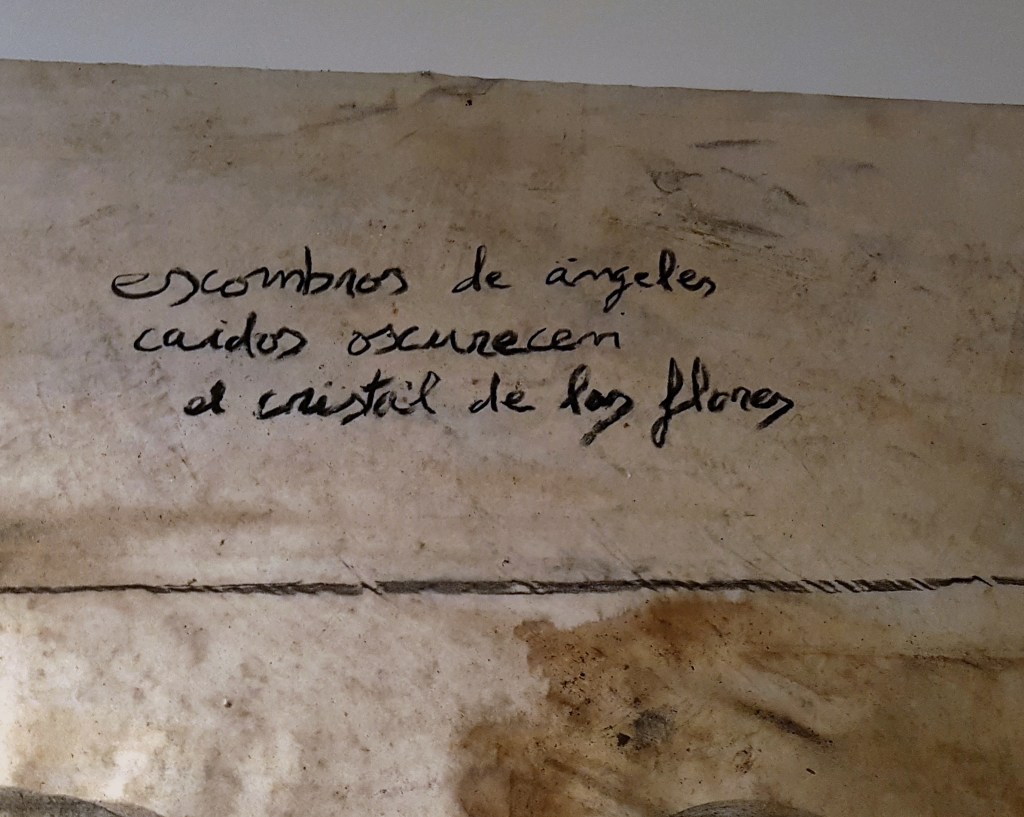 escombros de ángeles
caidos oscurecen
el cristal de las flores